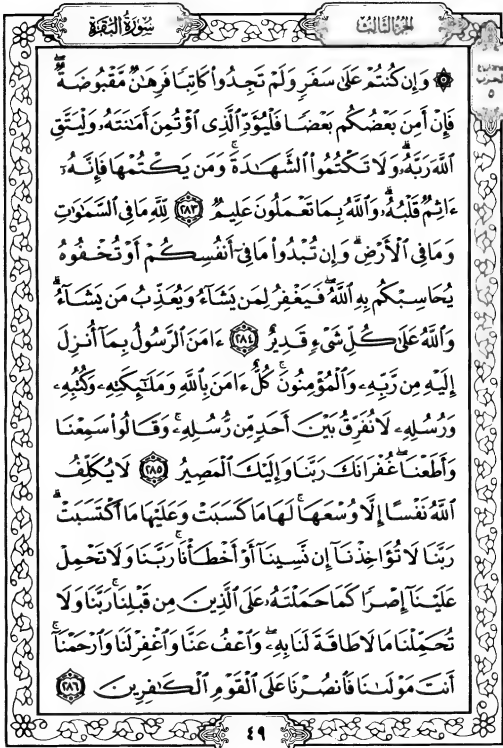 سُورَةُ البَقَرَةِ
الجُزْءُ الثَّالِثُ
۞ وَإِن كُنتُمْ عَلَىٰ سَفَرٍ وَلَمْ تَجِدُوا۟ كَاتِبًا فَرِهَٰنٌ مَّقْبُوضَةٌ ۖ
فَإِنْ أَمِنَ بَعْضُكُم بَعْضًا فَلْيُؤَدِّ ٱلَّذِى ٱؤْتُمِنَ أَمَٰنَتَهُۥ وَلْيَتَّقِ
ٱللَّهَ رَبَّهُۥ ۗ وَلَا تَكْتُمُوا۟ ٱلشَّهَٰدَةَ ۚ وَمَن يَكْتُمْهَا فَإِنَّهُۥٓ
ءَاثِمٌ قَلْبُهُۥ ۗ وَٱللَّهُ بِمَا تَعْمَلُونَ عَلِيمٌ ٢٨٣ لِّلَّهِ مَا فِى ٱلسَّمَٰوَٰتِ
وَمَا فِى ٱلْأَرْضِ ۗ وَإِن تُبْدُوا۟ مَا فِىٓ أَنفُسِكُمْ أَوْ تُخْفُوهُ
يُحَاسِبْكُم بِهِ ٱللَّهُ ۖ فَيَغْفِرُ لِمَن يَشَآءُ وَيُعَذِّبُ مَن يَشَآءُ ۗ
وَٱللَّهُ عَلَىٰ كُلِّ شَىْءٍ قَدِيرٌ ٢٨٤ ءَامَنَ ٱلرَّسُولُ بِمَآ أُنزِلَ
إِلَيْهِ مِن رَّبِّهِۦ وَٱلْمُؤْمِنُونَ ۚ كُلٌّ ءَامَنَ بِٱللَّهِ وَمَلَٰٓئِكَتِهِۦ وَكُتُبِهِۦ
وَرُسُلِهِۦ لَا نُفَرِّقُ بَيْنَ أَحَدٍ مِّن رُّسُلِهِۦ ۚ وَقَالُوا۟ سَمِعْنَا
وَأَطَعْنَا ۖ غُفْرَانَكَ رَبَّنَا وَإِلَيْكَ ٱلْمَصِيرُ ٢٨٥ لَا يُكَلِّفُ
ٱللَّهُ نَفْسًا إِلَّا وُسْعَهَا ۚ لَهَا مَا كَسَبَتْ وَعَلَيْهَا مَا ٱكْتَسَبَتْ ۗ
رَبَّنَا لَا تُؤَاخِذْنَآ إِن نَّسِينَآ أَوْ أَخْطَأْنَا ۚ رَبَّنَا وَلَا تَحْمِلْ
عَلَيْنَآ إِصْرًا كَمَا حَمَلْتَهُۥ عَلَى ٱلَّذِينَ مِن قَبْلِنَا ۚ رَبَّنَا وَلَا
تُحَمِّلْنَا مَا لَا طَاقَةَ لَنَا بِهِۦ ۖ وَٱعْفُ عَنَّا وَٱغْفِرْ لَنَا وَٱرْحَمْنَآ ۚ
أَنتَ مَوْلَىٰنَا فَٱنصُرْنَا عَلَى ٱلْقَوْمِ ٱلْكَٰفِرِينَ ٢٨٦
٤٩